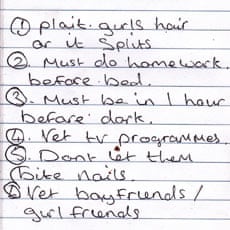 ① plait. girls hair
or it splits
②. Must do homework.
before bed.
③. Must be in 1 hour
before dark.
④. Vet tv programmes.
⑤. Dont let them
bite nails.
⑥ Vet boyfriends /
girl friends